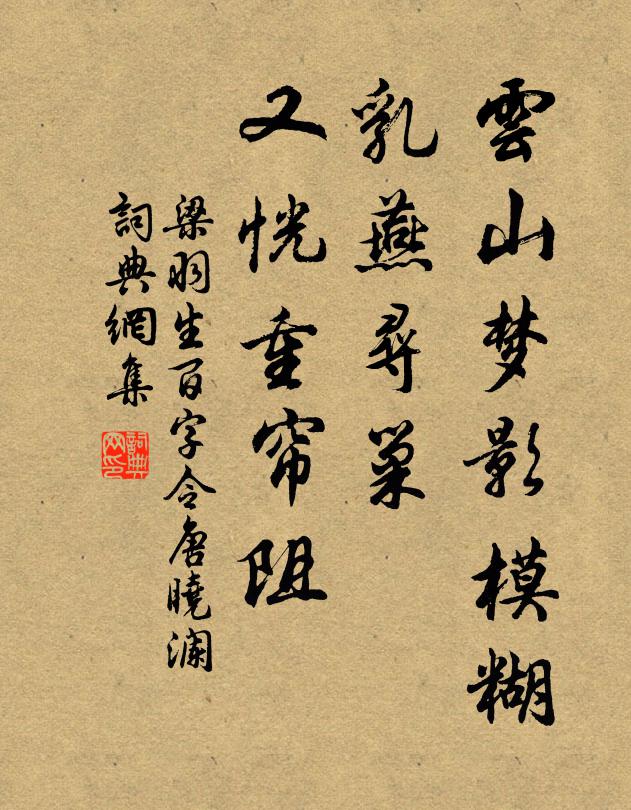 雲山梦影模糊
乳燕尋巢
又恍重帘阻
梁羽生百字令唐曉澜
詞典網集
詞典网印